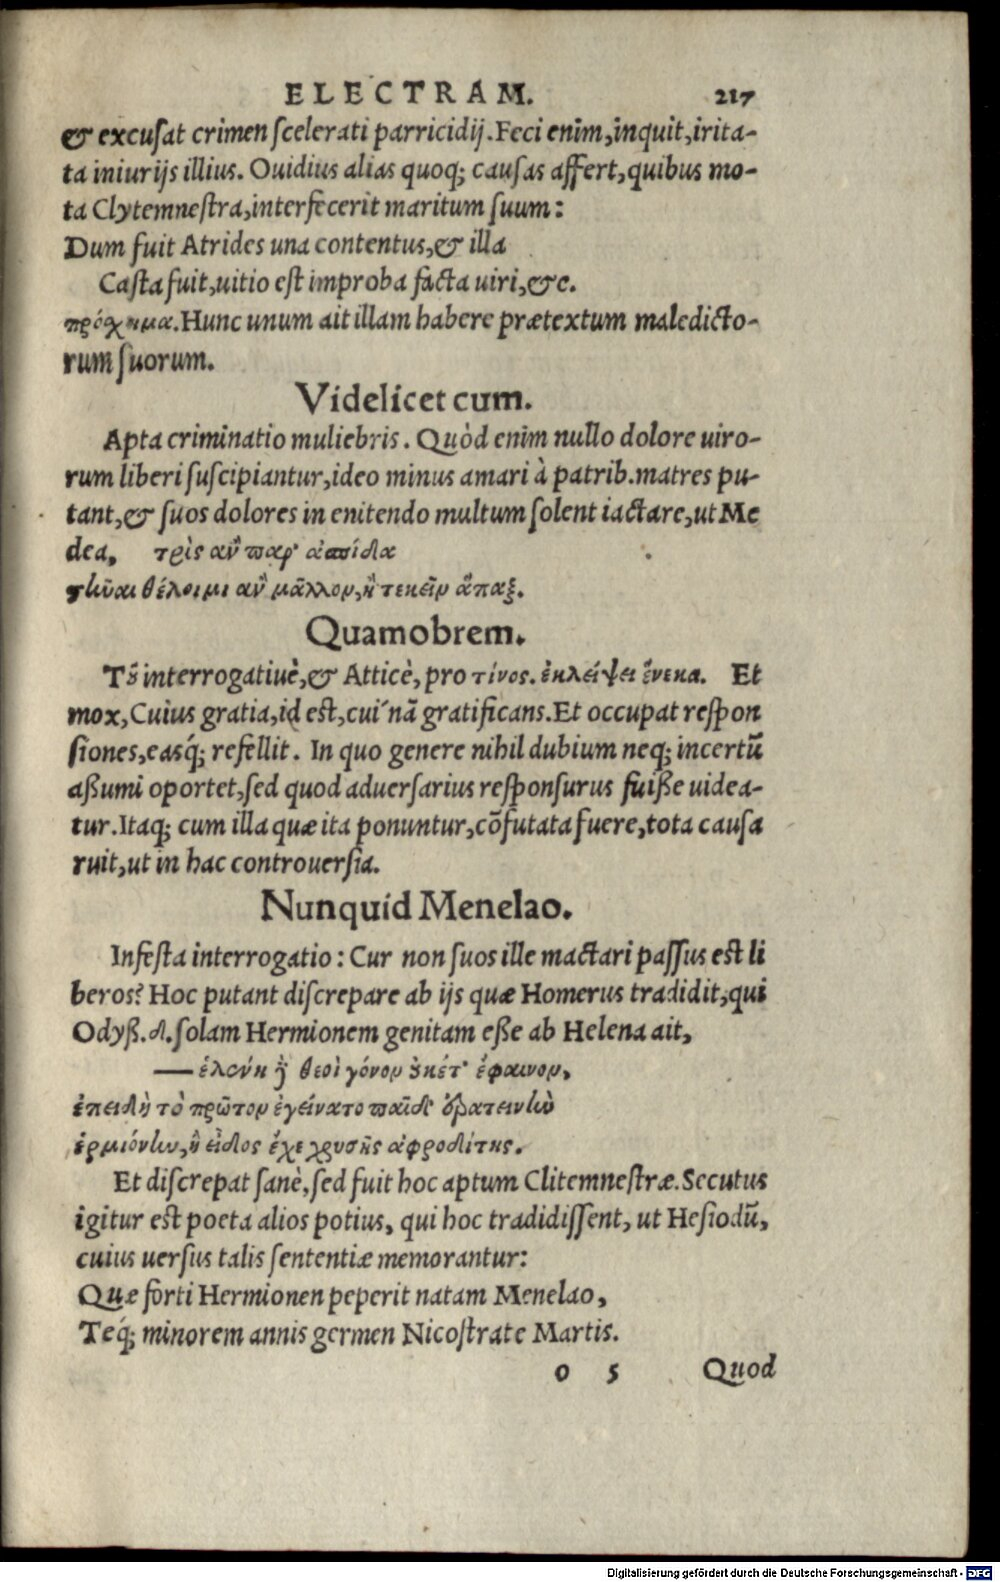 ELECTRAM. 217
& excusat crimen scelerati parricidij. Feci enim, inquit, irita-
ta iniurijs illius. Ouidius alias quoq; causas affert, quibus mo-
ta Clytemnestra, interfecerit maritum suum:
Dum fuit Atrides una contentus, & illa
Casta fuit, uitio est improba facta uiri, &c.
πρόσχημα. Hunc unum ait illam habere prætextum maledicto-
rum suorum.
Videlicet cum.
Apta criminatio muliebris. Quòd enim nullo dolore uiro-
rum liberi suscipiantur, ideo minus amari à patrib. matres pu-
tant, & suos dolores in enitendo multum solent iactare, ut Me
dea, τρὶς ἂν παρ' ἀσπίδα
στῆναι θέλοιμι ἂν μᾶλλον, ἢ τεκεῖν ἅπαξ.
Quamobrem.
Τοῦ interrogatiuè, & Atticè, pro τίνος. ἐκλείψει ἕνεκα. Et
mox, Cuius gratia, id est, cui´nã gratificans. Et occupat respon
siones, easq́; refellit. In quo genere nihil dubium neq; incertũ
aßumi oportet, sed quod aduersarius responsurus fuiße uidea-
tur. Itaq; cum illa quæ ita ponuntur, cõfutata fuere, tota causa
ruit, ut in hac controuersia.
Nunquid Menelao.
Infesta interrogatio: Cur non suos ille mactari passus est li
beros? Hoc putant discrepare ab ijs quæ Homerus tradidit, qui
Odyß. δ. solam Hermionem genitam eße ab Helena ait,
— ἑλένῃ δὲ θεοὶ γόνον οὐκέτ' ἔφαινον,
ἐπειδὴ τὸ πρῶτον ἐγείνατο παῖδ' ἐρατεινὴν
ἑρμιόνην, ἣ εἶδος ἔχε χρυσῆς ἀφροδίτης.
Et discrepat sanè, sed fuit hoc aptum Clitemnestræ. Secutus
igitur est poeta alios potius, qui hoc tradidissent, ut Hesiodũ,
cuius uersus talis sententiæ memorantur:
Quæ forti Hermionen peperit natam Menelao,
Teq́; minorem annis germen Nicostrate Martis.
o 5 Quod
Digitalisierung gefördert durch die Deutsche Forschungsgemeinschaft - DFG